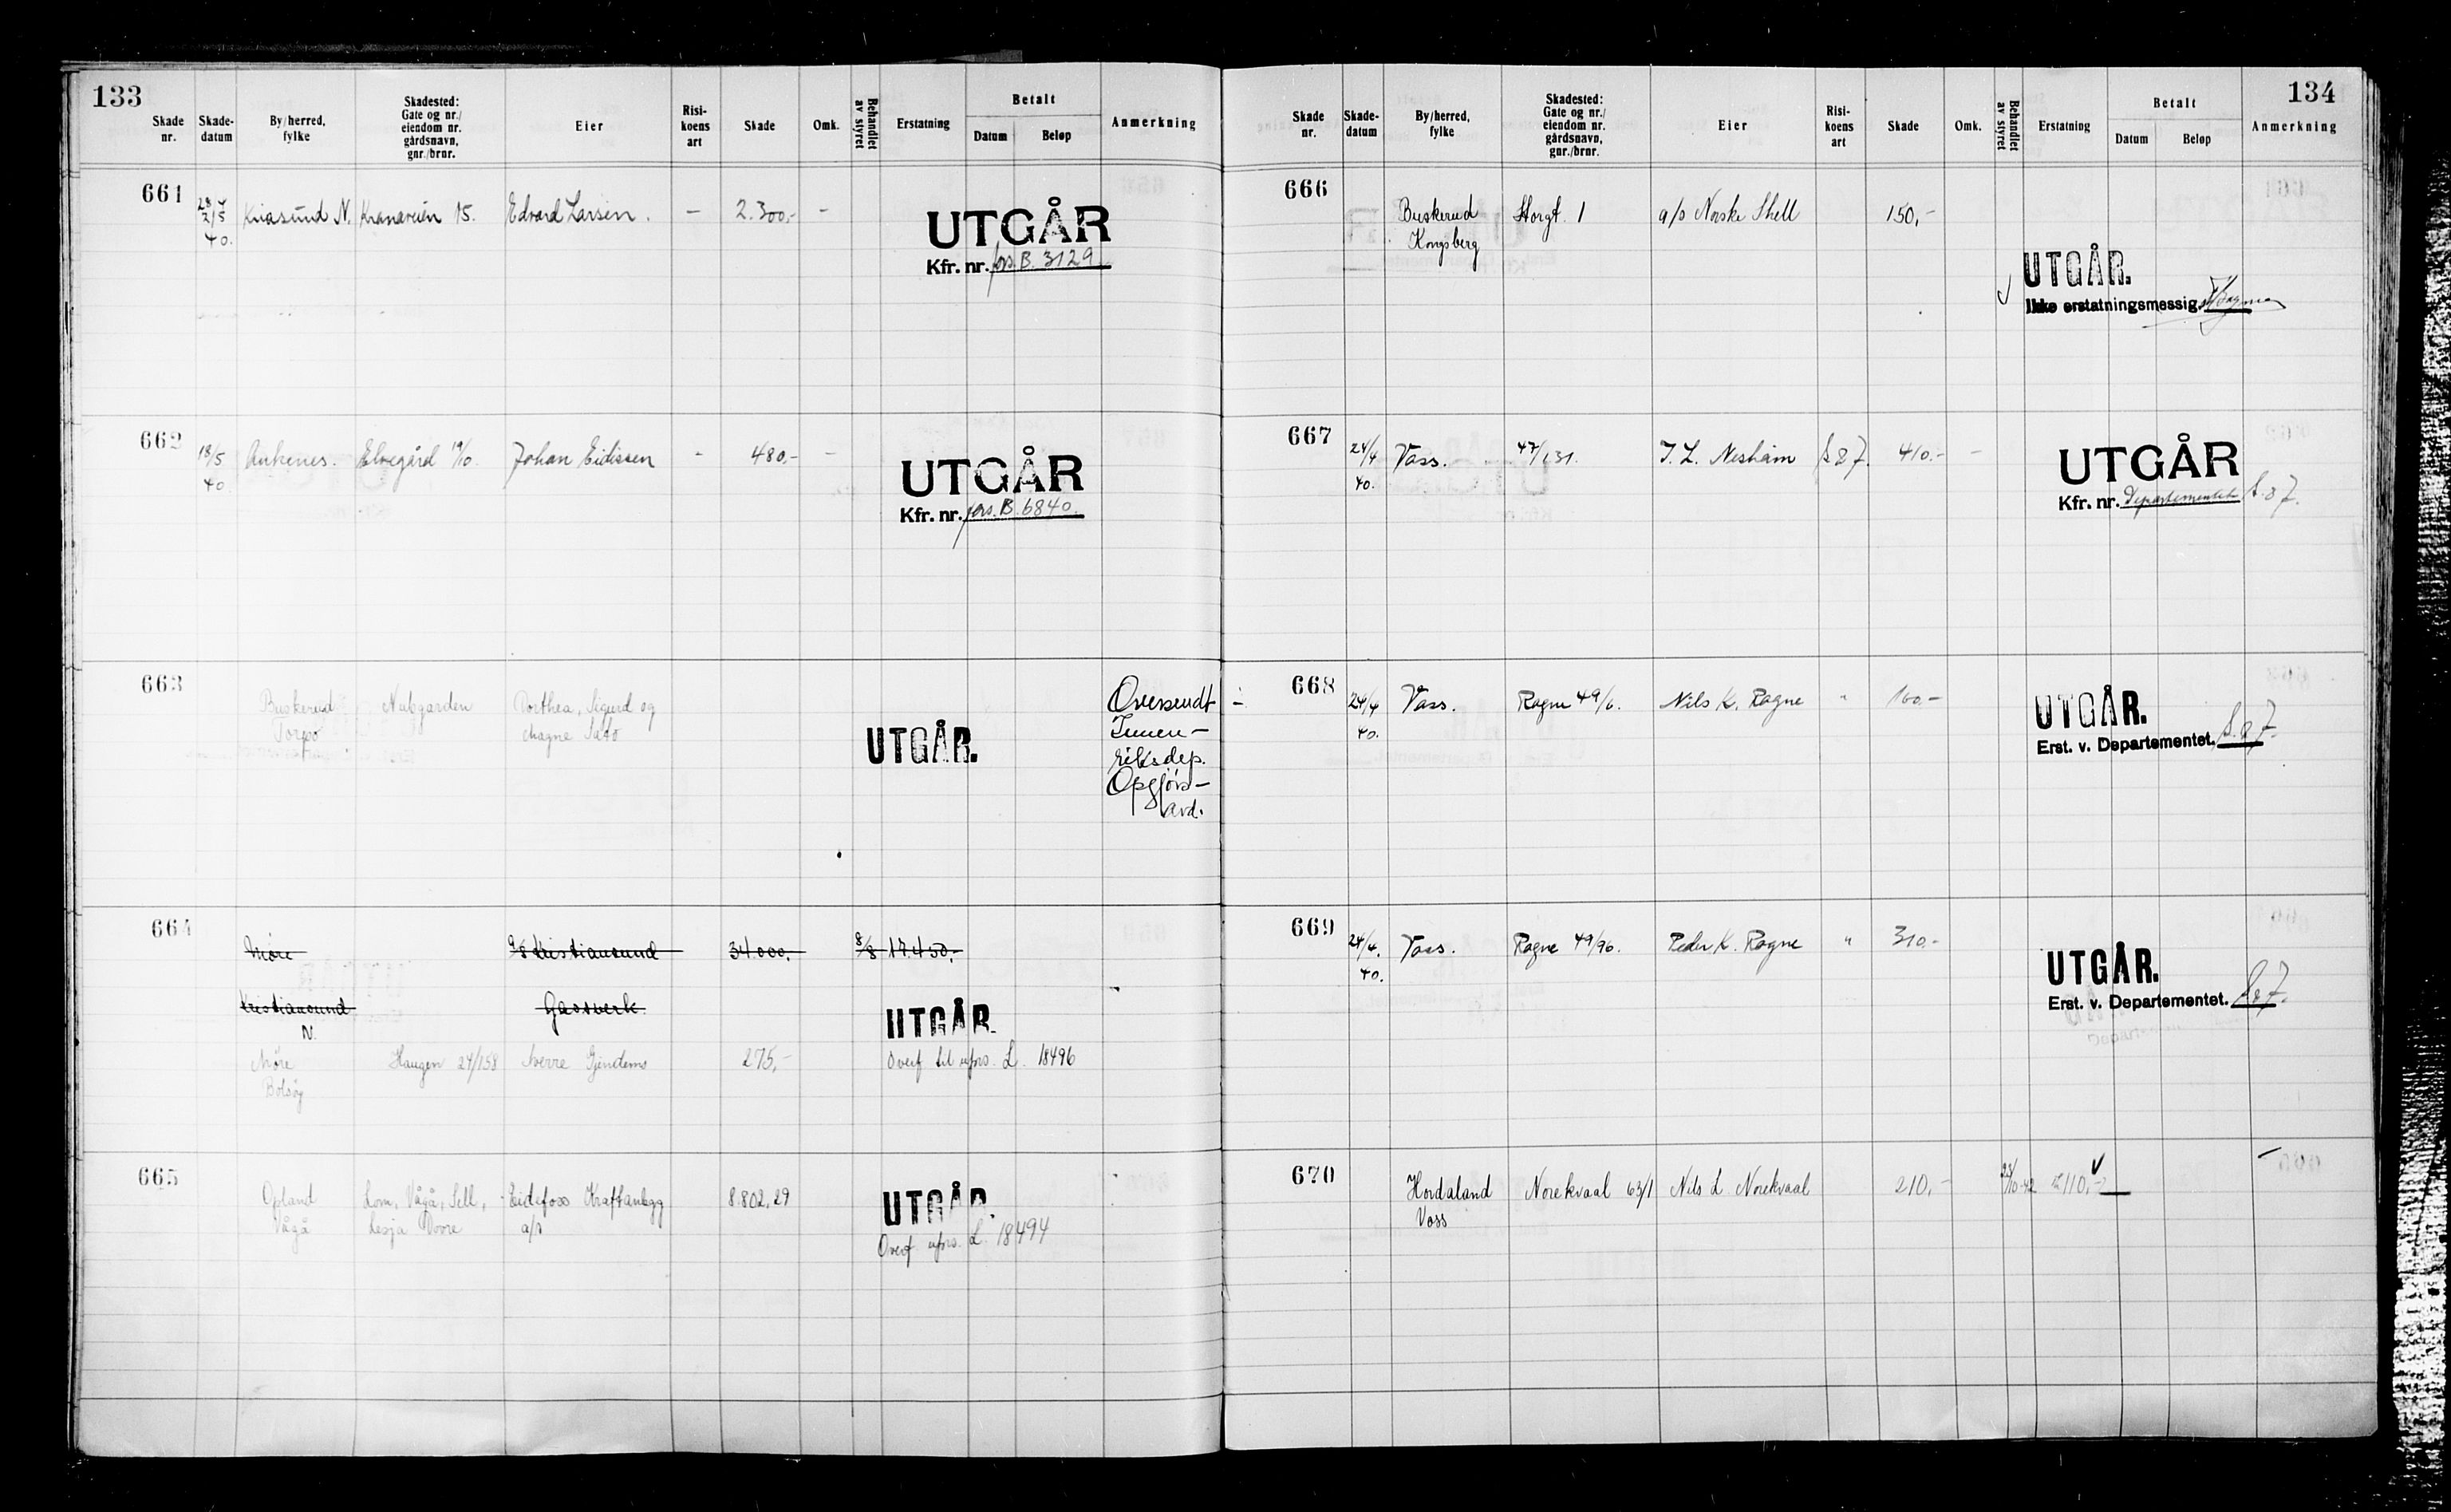 133
Skade nr. Skade-datum By/herred, fylke Skadested: Gate og nr./ eiendom nr. gårdsnavn, gnr./brnr. Eier Risi-koens art Skade Omk. Behandlet av styret Erstatning Betalt Datum Beløp Anmerkning
661 28/4 2/5 40. Kr.asund N. Kranaveien 15. Edvard Larsen. — 2.300,- —
UTGÅR
Kfr. nr. fors. B. 3129
662 18/5 40 Ankenes. Elvegård 19/10. Johan Eidissen - 480,- —
UTGÅR
Kfr. nr. fors. B. 6840.
663 Buskerud Nubgarden Dorthea, Sigurd og
Torpo Magne Sato
UTGÅR.
Oversendt
Innen-
riksdep.
Opgjörs-
avd.
664 Møre a/s Kristiansund 34.000,- 8/8 17.450,-
Kristiansund Gassverk
N.
UTGÅR.
Møre Haugen 24/158 Sverre Gjendems 275,- Overf til ufors. L. 18496
Bolsøy
665 Opland Lom, Vågå, Sell, Eidefoss Kraftanlegg 8.802,29
Vågå Lesja Dovre a/s
UTGÅR.
Overf ufors. L. 18494
134
Skade nr. Skade-datum By/herred, fylke Skadested: Gate og nr./ eiendom nr. gårdsnavn, gnr./brnr. Eier Risi-koens art Skade Omk. Behandlet av styret Erstatning Betalt Datum Beløp Anmerkning
666 Buskerud Storgt. 1 a/s Norske Shell 150,-
Kongsberg
UTGÅR.
Ikke erstatningsmessig.
667 24/4 40. Voss. 47/131. I. L. Nesheim 410.- -
UTGÅR
Kfr. nr. Departementet
668 24/4 40. Voss. Rogne 49/6. Nils K. Rogne " 160.-
UTGÅR.
Erst. v. Departementet.
669 24/4. 40. Voss. Rogne 49/90. Peder K. Rogne " 310.-
UTGÅR.
Erst. v. Departementet.
670 Hordaland Norekvaal 63/1 Nils L Norekvaal 210,- 23/10-42 110,-
Voss